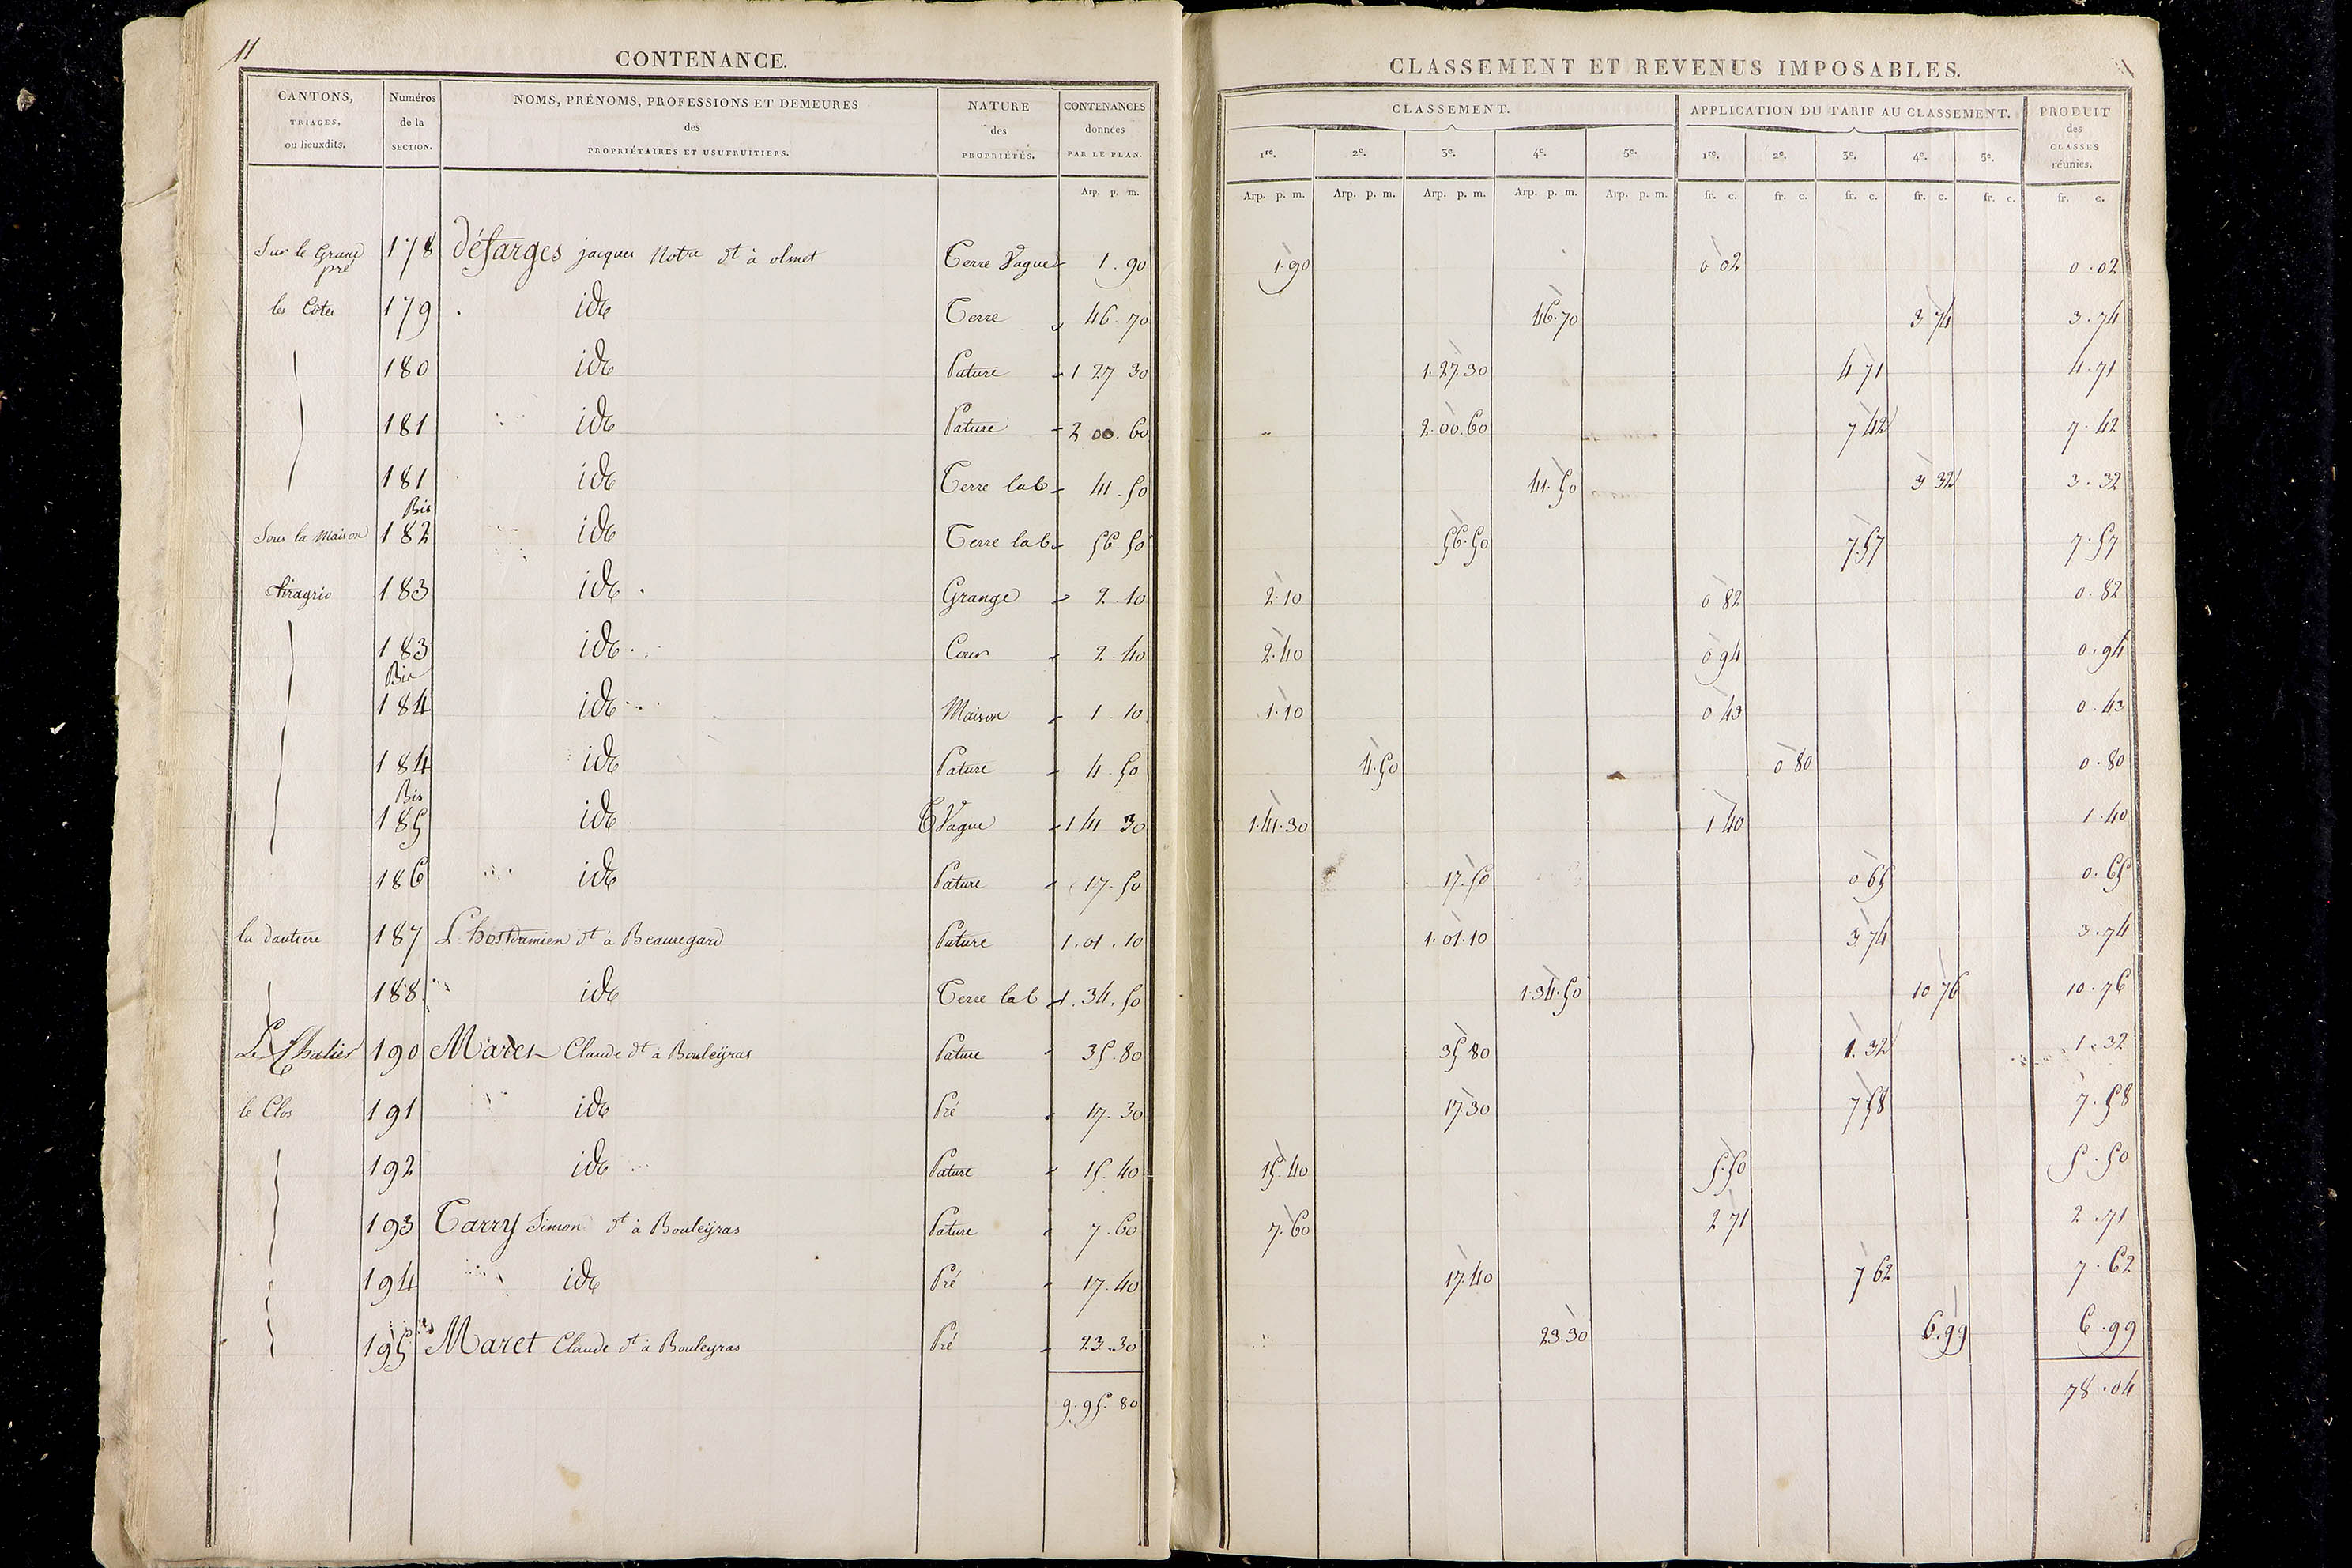 11
CONTENANCE.
CANTONS, TRIAGES, ou lieuxdits. | Numéros de la SECTION. | NOMS, PRÉNOMS, PROFESSIONS ET DEMEURES des PROPRIÉTAIRES ET USUFRUITIERS. | NATURE des PROPRIÉTÉS. | CONTENANCES données PAR LE PLAN.
Arp. p. m.
Sur le Grand pré 178 désarges jacques Notre dt à olmet Terre Vague 1.90
les Côtes 179 ide Terre 46.70
180 ide Pature 1 27 30
181 ide Pature 2 00.60
181 Bis ide Terre lab 41.50
Sous la Maison 182 ide Terre lab 56.50
183 ide Grange 2.10
183 Bis ide Cour 2 40
184 ide Maison 1.10
184 Bis ide Pature 4.50
185 ide T Vague 1 41 30
186 ide Pature 17.50
187 dt à Beauregard Pature 1.01.10
188 ide Terre lab 1.34.50
190 Maret Claude dt à Bouleÿras Pature 35.80
le Clos 191 ide Pré 17.30
192 ide Pature 15.40
193 Tarry Simon dt à Bouleÿras Pature 7.60
194 ide Pré 17.40
195 Maret Claude dt à Bouleyras Pré 23.30
9.95.80
CLASSEMENT ET REVENUS IMPOSABLES.
CLASSEMENT. | APPLICATION DU TARIF AU CLASSEMENT. | PRODUIT des CLASSES réunies.
1re. 2e. 3e. 4e. 5e. 1re. 2e. 3e. 4e. 5e.
Arp. p. m. Arp. p. m. Arp. p. m. Arp. p. m. Arp. p. m. fr. c. fr. c. fr. c. fr. c. fr. c. fr. c.
1.90 0 02 0.02
46.70 3 74 3.74
1.27.30 4 71 4.71
2.00.60 7 42 7.42
41.50 3 32 3.32
56.50 7.57 7.57
2.10 0 82 0.82
2.40 0 94 0.94
1.10 0 43 0.43
4.50 0 80 0.80
1.41.30 1 40 1.40
17.50 0 65 0.65
1.01.10 3 74 3.74
1.34.50 10 76 10.76
35.80 1.32 1.32
17.30 7 58 7.58
15.40 5.50 5.50
7.60 2 71 2.71
17.40 7 62 7.62
23.30 6.99 6.99
78.04